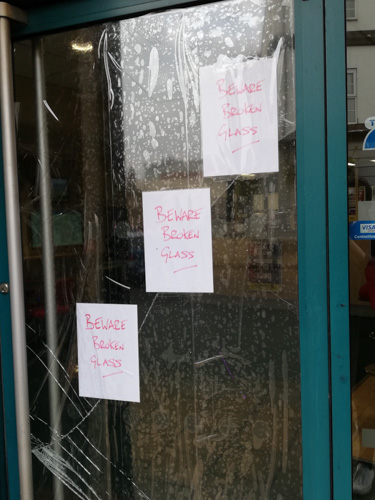 BEWARE
BROKEN
GLASS
BEWARE
BROKEN
GLASS
BEWARE
BROKEN
GLASS
VISA